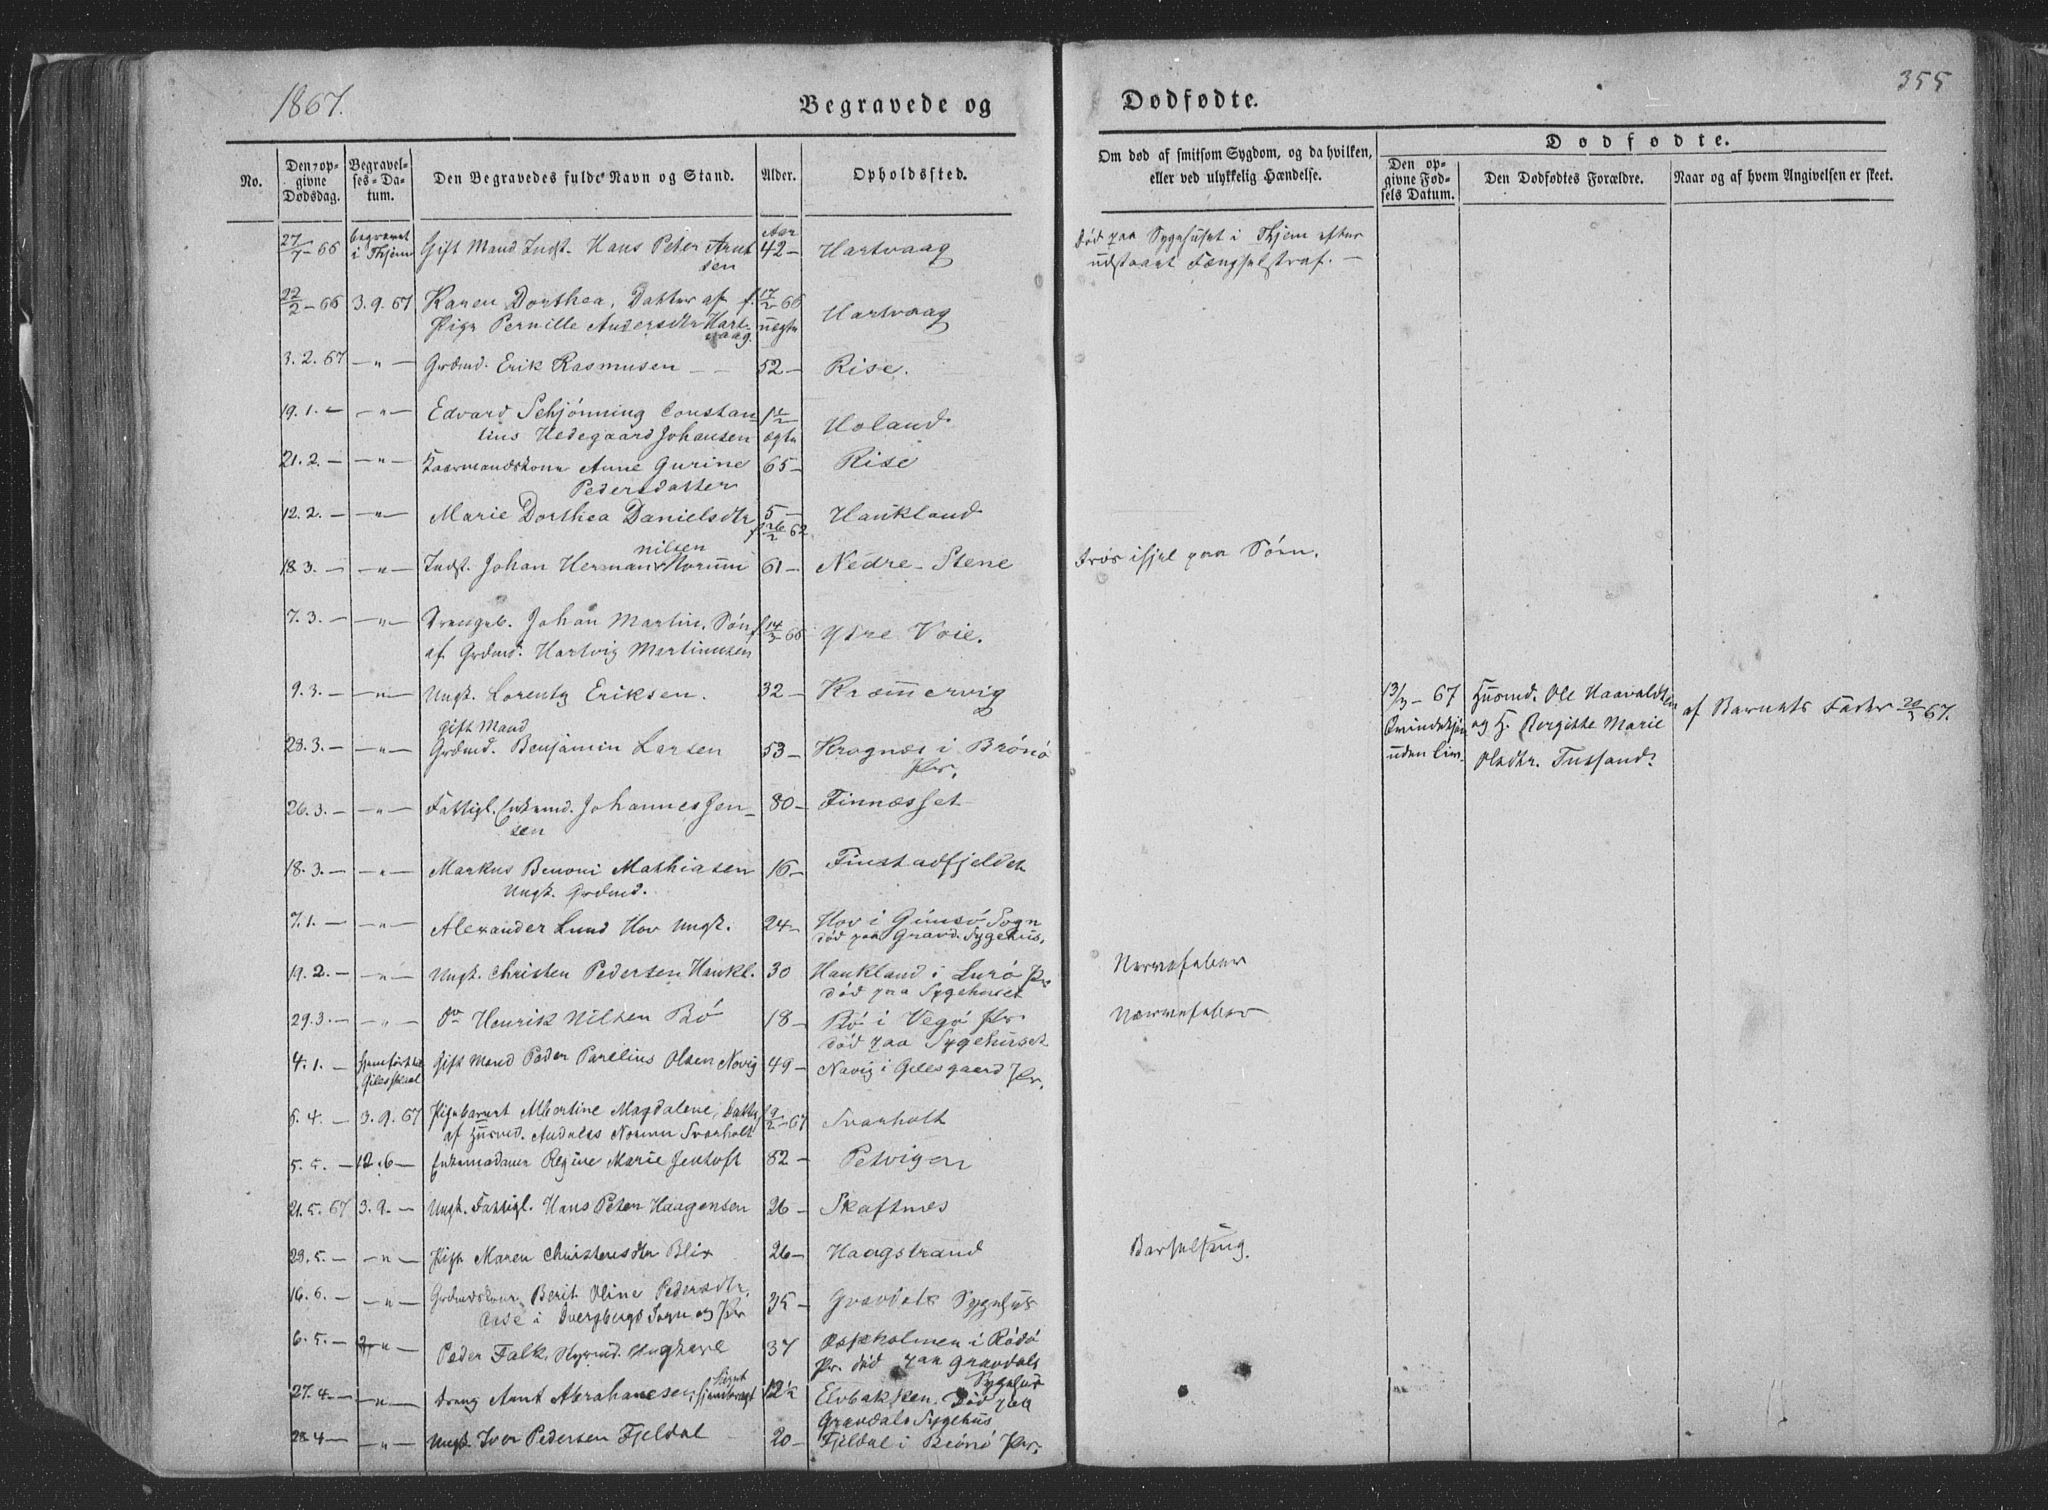 1867.
Begravede og
Dødfødte.
355
No.
Den opgivne Dødsdag.
Begravelses-Datum.
Den Begravedes fulde Navn og Stand.
Alder.
Opholdssted.
Om død af smitsom Sygdom, og da hvilken, eller ved ulykkelig Hændelse.
Dødfødte.
Den opgivne Fødsels Datum.
Den Dødfødtes Forældre.
Naar og af hvem Angivelsen er skeet.
27/7 - 66 begravet i Thjem Gift Mand Indst. Hans Peter Arnt Aar 42 - Hartvaag Død paa Sygehuset i Thjem efter
sen udstaaet Fængselstraf. -
22/2 - 66 3.9.67 Karen Dorthea, Datter af f. 17/2 66 Hartvaag
Pige Pernille Andersdtr Hart- uægte
vaag.
3.2.67 - " - Grdmd. Erik Rasmusen - - 52 - Rise.
19.1. - - " - Edvard Schjønning Constan- 1 1/2 Holand.
tius Hedegaard Johansen ægte
21.2. - - " - Kaarmandskone Anne Gurine 65 - Rise
Pedersdatter
12.2. - - " - Marie Dorthea Danielsdtr 5 - Haukland
f 26/2 62
nilsen
18.3. - - " - Indst. Johan Herman Norum 61 - Nedre-Stene Drog ihjel paa Søen.
7.3. - - " - Drengeb. Johan Martin, Søn f 14/3 66 Ydre Voie.
af Grdmd. Hartvig Martinusen
9.3. - - " - Ungk. Lorentz Eriksen. 32 - Kræmmervig 13/3 - 67 Husmd. Ole Haavaldsen af Barnets Fader 20/3 67.
Qvindekjøn og H. Bergitte Marie
uden Liv. Olsdtr. Tussand.
gift Mand
28.3. - - " - Grdmd. Benjamin Larsen 53 - Krognæs i Brønø
Pr.
26.3. - - " - Fattigl. Enkemd. Johannes Jen- 80 - Finnæsset
sen
18.3. - - " - Markus Benoni Mathiasen 16 - Finstadfjeldet
Ungk. Grdmd.
7.1. - - " - Alexander Lund Hov Ungk. 24 - Hov i Gimsø Sogn
død paa Gravd. Sygehus.
19.2. - - " - Ungk. Christen Pedersen Haukl. 30 Haukland i Lurø Pr. Nervefeber
død paa Sygehuset
29.3. - - " - do Henrik Nilsen Bø 18 - Bø i Vegø Pr. Nervefeber
død paa Sygehuset
4.1. - Hjemført til Gildeskaal Gift Mand Peder Parelius Olsen Novig 49 - Navig i Gilesgaard Pr.
5.4. - 3.9.67 Pigebarnet Albertine Magdalene, Datter f 9/2 - 67 Svarholt
af Husmd. Andreas Normn Svarholt
5.5. - 12.6 - Enkemadame Regine Marie Jentoft 82 - Petvigen
21.5.67 3.9. - Ungk. Fattigl. Hans Peter Haagensen 26 - Skaftnes
28.5. - - " - Pige Maren Christensdtr Blix 26 - Haagstrand Barselseng.
16.6. - - " - Grdmdskone Berit Oline Pedersdtr. 35 - Gravdals Sygehus
i Dverbergs Sogn og Pr
6.5. - - " - Peder Falk, Ungkarl 37 Oskholmen i Rødø
Pr. død paa Gravdals
Sygehus
27.4. - - " - Dreng Arnt Abrahamsen, 12 1/2 Elvbakken. Død paa
Gravdals Sygehus
28.4 - - " - Ungk. Iver Pedersen Fjeldal 20 - Fjeldal i Brønø Pr.